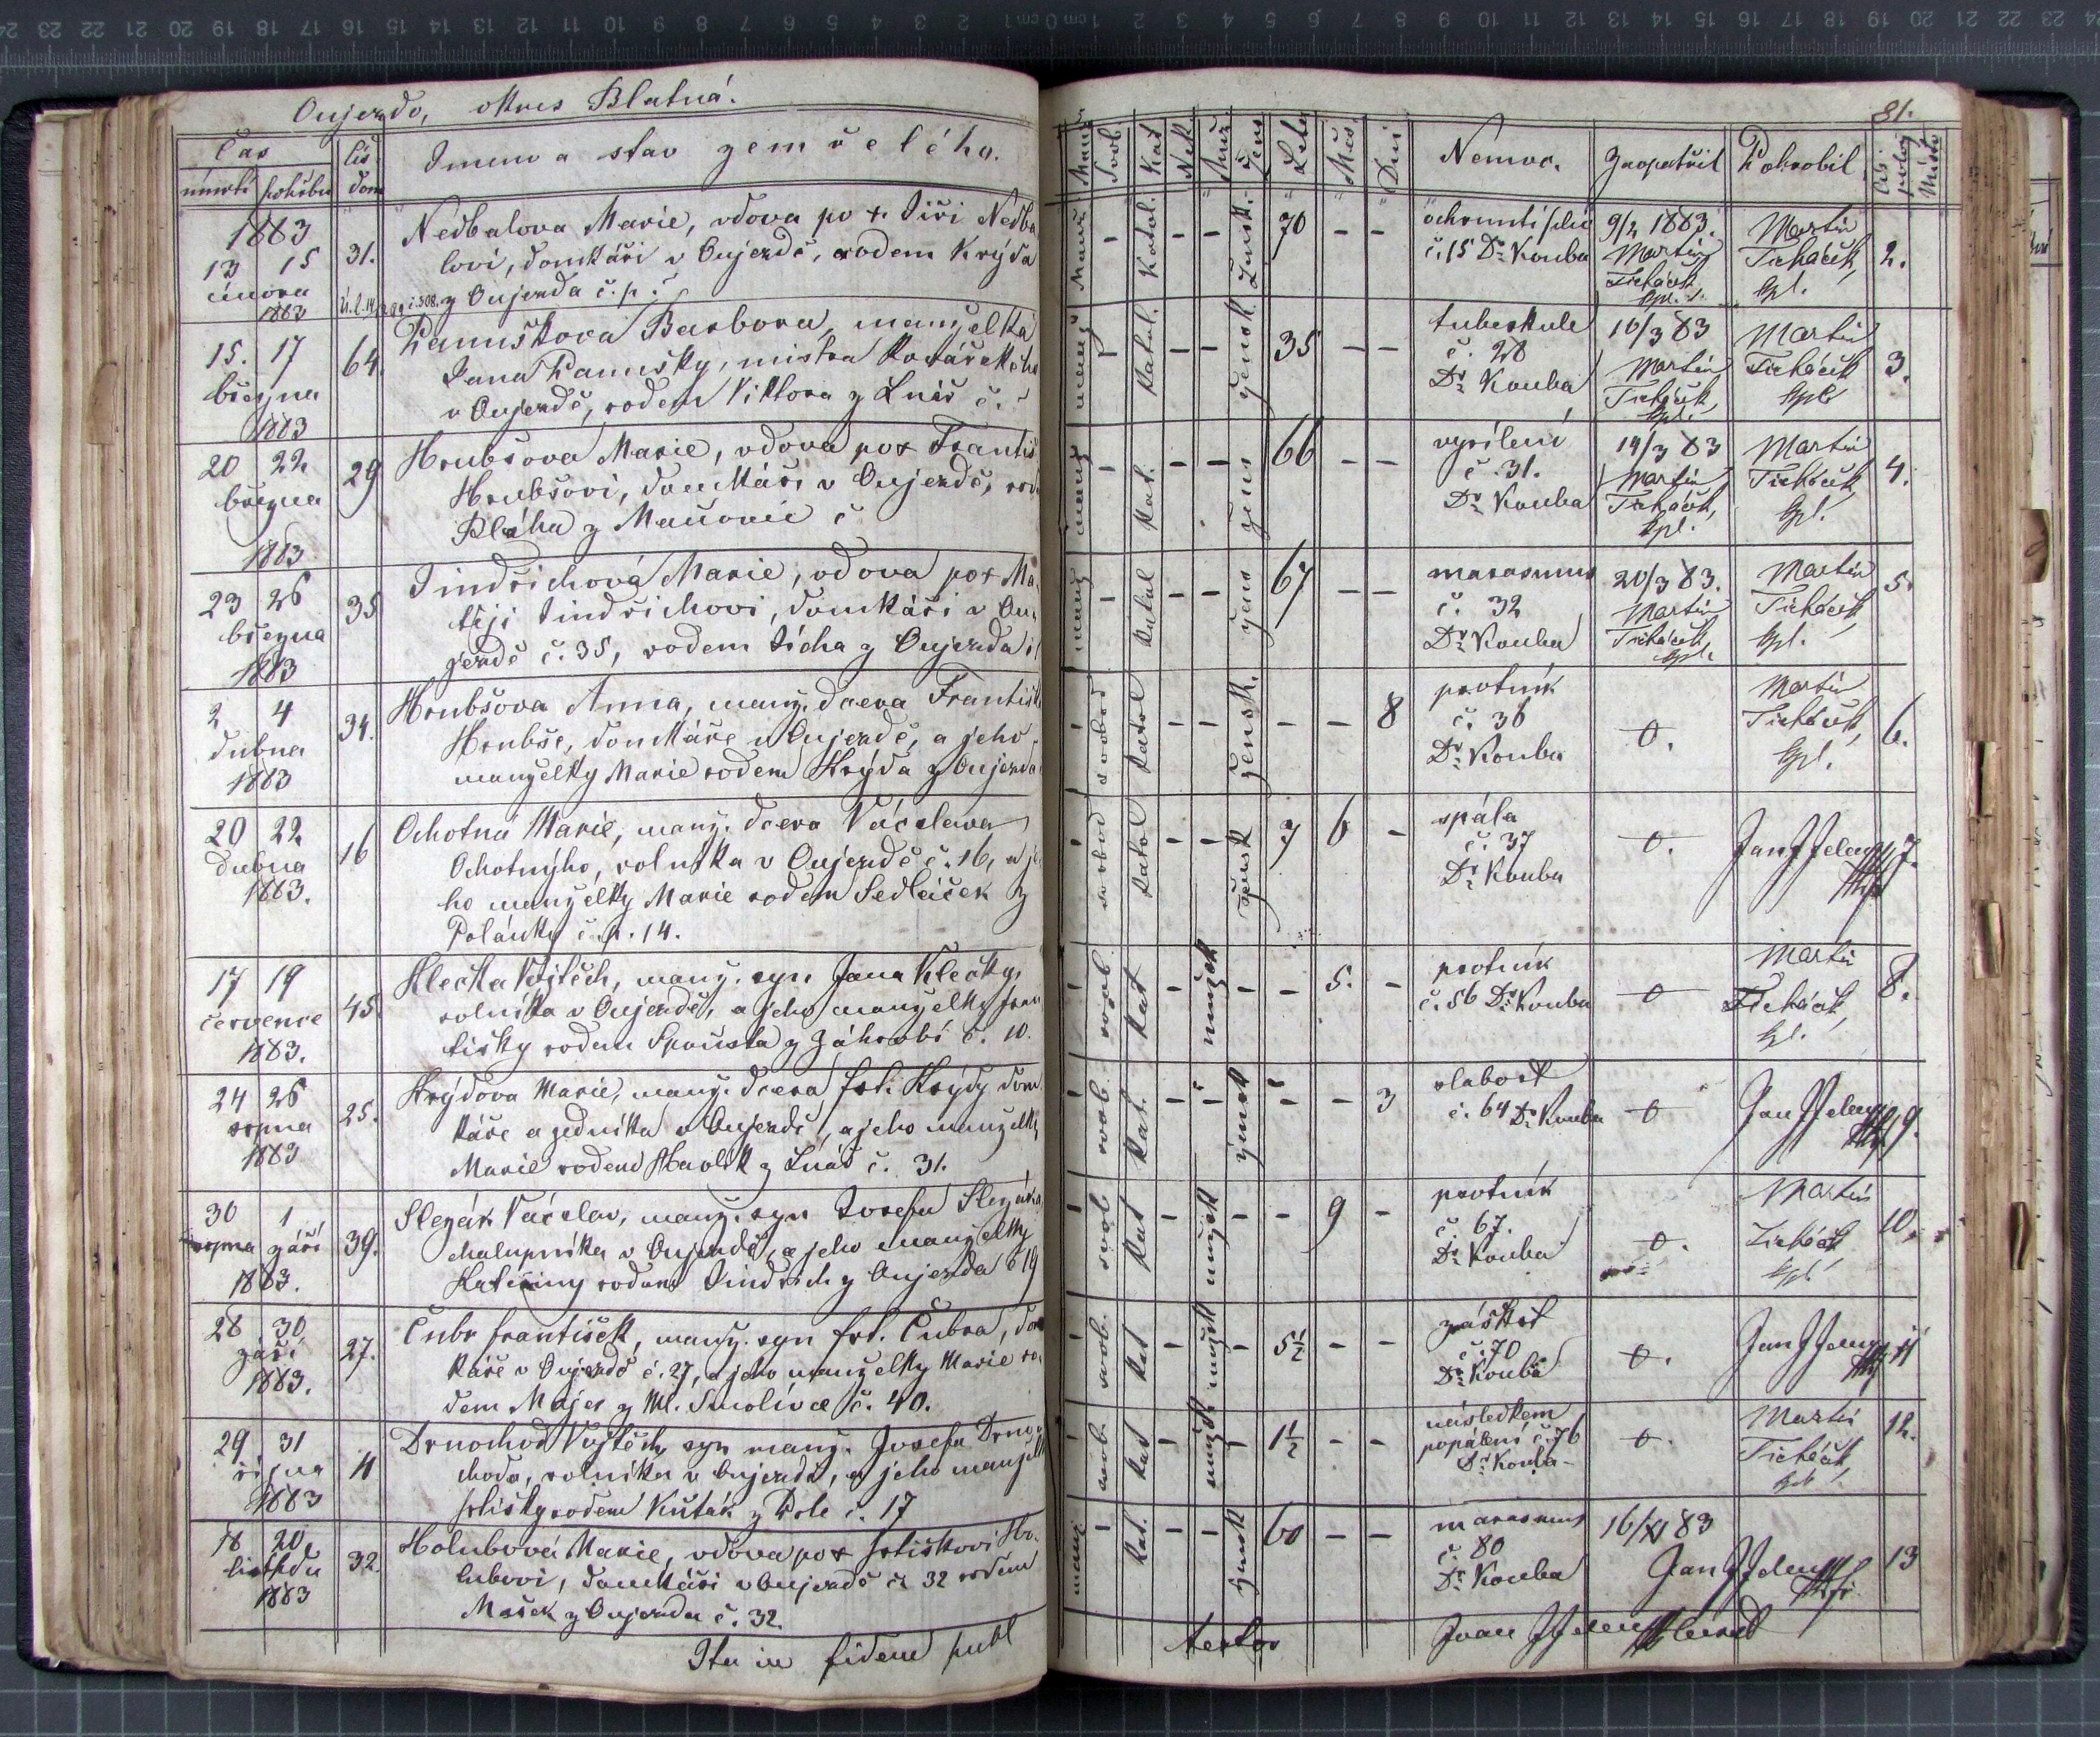 Oujezdo, okres Blatná.
81.
Čas
úmrtí pohřbu
Čís. dom.
Jmeno a stav zemřelého.
Kat
Nek
Muž
Žens
Léta
Měs.
Dni
Nemoc.
Zaopatřil
Pohrobil
Místo
1883
13 15
února
31.
Nedbalova Marie, vdova po + Jiři Nedba
lovi, domkáři v Oujezdě, rodem Krýda
z Oujezda č. p.
Katol. - - Žensk. 70 - -
č. 15 Dr Kouba
9/2 1883.
Martin
Ticháček
kpl.
Martin
Ticháček,
kpl.
2.
1883
15. 17
března
64.
Hanuškova Barbora, manželka
Jana Hanušky, mistra kovářského
v Oujezdě, rodem Viktora z Lnář č.
Katol. - - žensk. 35 - -
tuberkule
č. 28
Dr Kouba
16/3 83
Martin
Ticháček,
kpl.
Martin
Ticháček
kpl.
3.
1883
20 22
března
29
Hrubšova Marie, vdova po + Františ
Hrubšovi, domkáři v Oujezdě, rod
Bláha z Mačovic č
Kat. - - žens 66 - -
vysílení
č. 31.
Dr Kouba
19/3 83
Martin
Ticháček,
kpl.
Martin
Ticháček,
kpl.
4.
1883
23 26
března
35
Jindřichová Marie, vdova po + Ma-
těji Jindřichovi, domkáři v Ou-
jezdě č. 35, rodem Tícha z Oujezda
Katol - - žens 67 - -
marasmus
č. 32
Dr Kouba
20/3 83.
Martin
Ticháček,
kpl.
Martin
Ticháček,
kpl.
5.
1883
2 4
dubna
1883
34.
Hrubšova Anna, manž. dcera Františ
Hrubše, domkáře v Oujezdě, a jeho
manželky Marie rodem Krýda z Oujezda
svobod Katol - - žensk. - - 8
psotník
č. 36
Dr Kouba
0.
Martin
Ticháček,
kpl.
6.
20 22
dubna
1883.
16
Ochotná Marie, manž. dcera Václava
Ochotnýho, rolníka v Oujezdě č. 16, a je
ho manželky Marie rodem Sedláček z
Polánky č. p. 14.
svobod Katol - - žensk 7 6 -
spála
č. 37
Dr Kouba
0.
Jan
7.
17 19
července
1883.
45
Klečka Vojtěch, manž. syn Jana Klečky,
rolníka v Oujezdě, a jeho manželky Fran
tišky rodem Spousta z Záhrobí č. 10.
svob. Kat - mužsk - - 5. -
psotník
č. 56 Dr Kouba
0
Martin
Ticháček,
kpl.
8.
24 26
srpna
1883
25.
Krýdova Marie, manž. dcera frt. Krýdy dom
káře a zedníka v Oujezdě, a jeho manželky
Marie rodem Havlík z Lnář č. 31.
svob. Kat. - - žensk - - 3
slabost
č. 64 Dr Kouba
0
Jan
9.
30 1
srpna září
1883.
39.
Slezák Václav, manž. syn Josefa Slezáka,
chalupníka v Oujezdě, a jeho manželky
Kateřiny rodem Jindřich z Oujezda č 19
svob Kat - mužsk - - 9 -
psotník
č. 67.
Dr Kouba
0.
Martin
Ticháček
kpl.
10.
28 30
září
1883.
27.
Čubr František, manž. syn frt. Čubra, dom
káře v Oujezdě č. 27, a jeho manželky Marie ro-
dem Majer z Ml. Smolívce č. 40.
svob. Kat - mužsk - 5½ - -
záškrt
č. 70
Dr Kouba
0.
Jan
11
29 31
října
1883
11
Drnochod Vojtěch, syn manž. Josefa Drno-
choda, rolníka v Oujezdě, a jeho manželk
frtišky rodem Kuták z Dole č. 17
svob. Kat - mužsk - 1½ - -
následkem
popálení č. 76
Dr Kouba
0.
Martin
Ticháček,
kpl.
12.
18 20
listopadu
1883
32.
Holubová Marie, vdova po + frtiškovi Ho-
lubovi, domkáři v Oujezdě č. 32 rodem
Mašek z Oujezda č. 32.
manž. Kat. - - žensk 60 - -
marasmus
č. 80
Dr Kouba
16/XI 83
Jan
13
Ita in fidem publ
testor